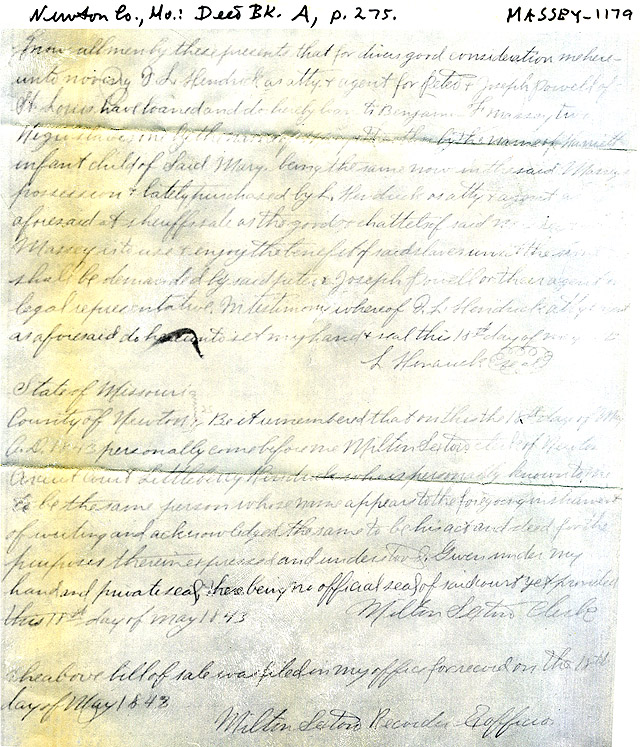 Newton Co., Mo.: Deed BK. A, p. 275. MASSEY-1179
Know all men by these presents that for divers good consideration me here
unto moving D L Hendrick as atty & agent for Peter & Joseph Powell of
St Louis have loaned and do hereby loan to Benjamin F Massey two
by the name of Harriett
infant child of said Mary being the same now in the said Massey's
possession & lately purchased by L. Hendrick as atty & agent
aforesaid at sheriff sale as the good & chattels of said
Massey its use & enjoy the benefit of said slaves until the same
shall be demanded by said peter & Joseph Powell or their agent or
legal representative. In testimony whereof D. L. Hendrick atty
as aforesaid do hereunto set my hand & seal this 18th day of may
L Hendrick Seal
State of Missouri
County of Newton Be it remembered that on this the 18th day of May
A.D. 1843 personally come before me Milton Sexton clerk of Newton
Circuit court Littleberry Hendrick who is personally known to me
to be the same person whose name appears to the foregoing instrument
of writing and acknowledged the same to be his act and deed for the
purposes therein expressed and understood. Given under my
hand and private seal, there being no official seal of said court yet provided
this 18th day of May 1843 Milton Sexton Clerk
The above bill of sale was filed in my office for record on the 18th
day of May 1843
Milton Sexton Recorder Exofficio